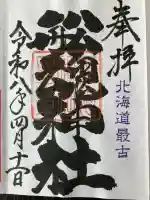 奉拝
北海道最古
船魂神社
令和八年四月十一日